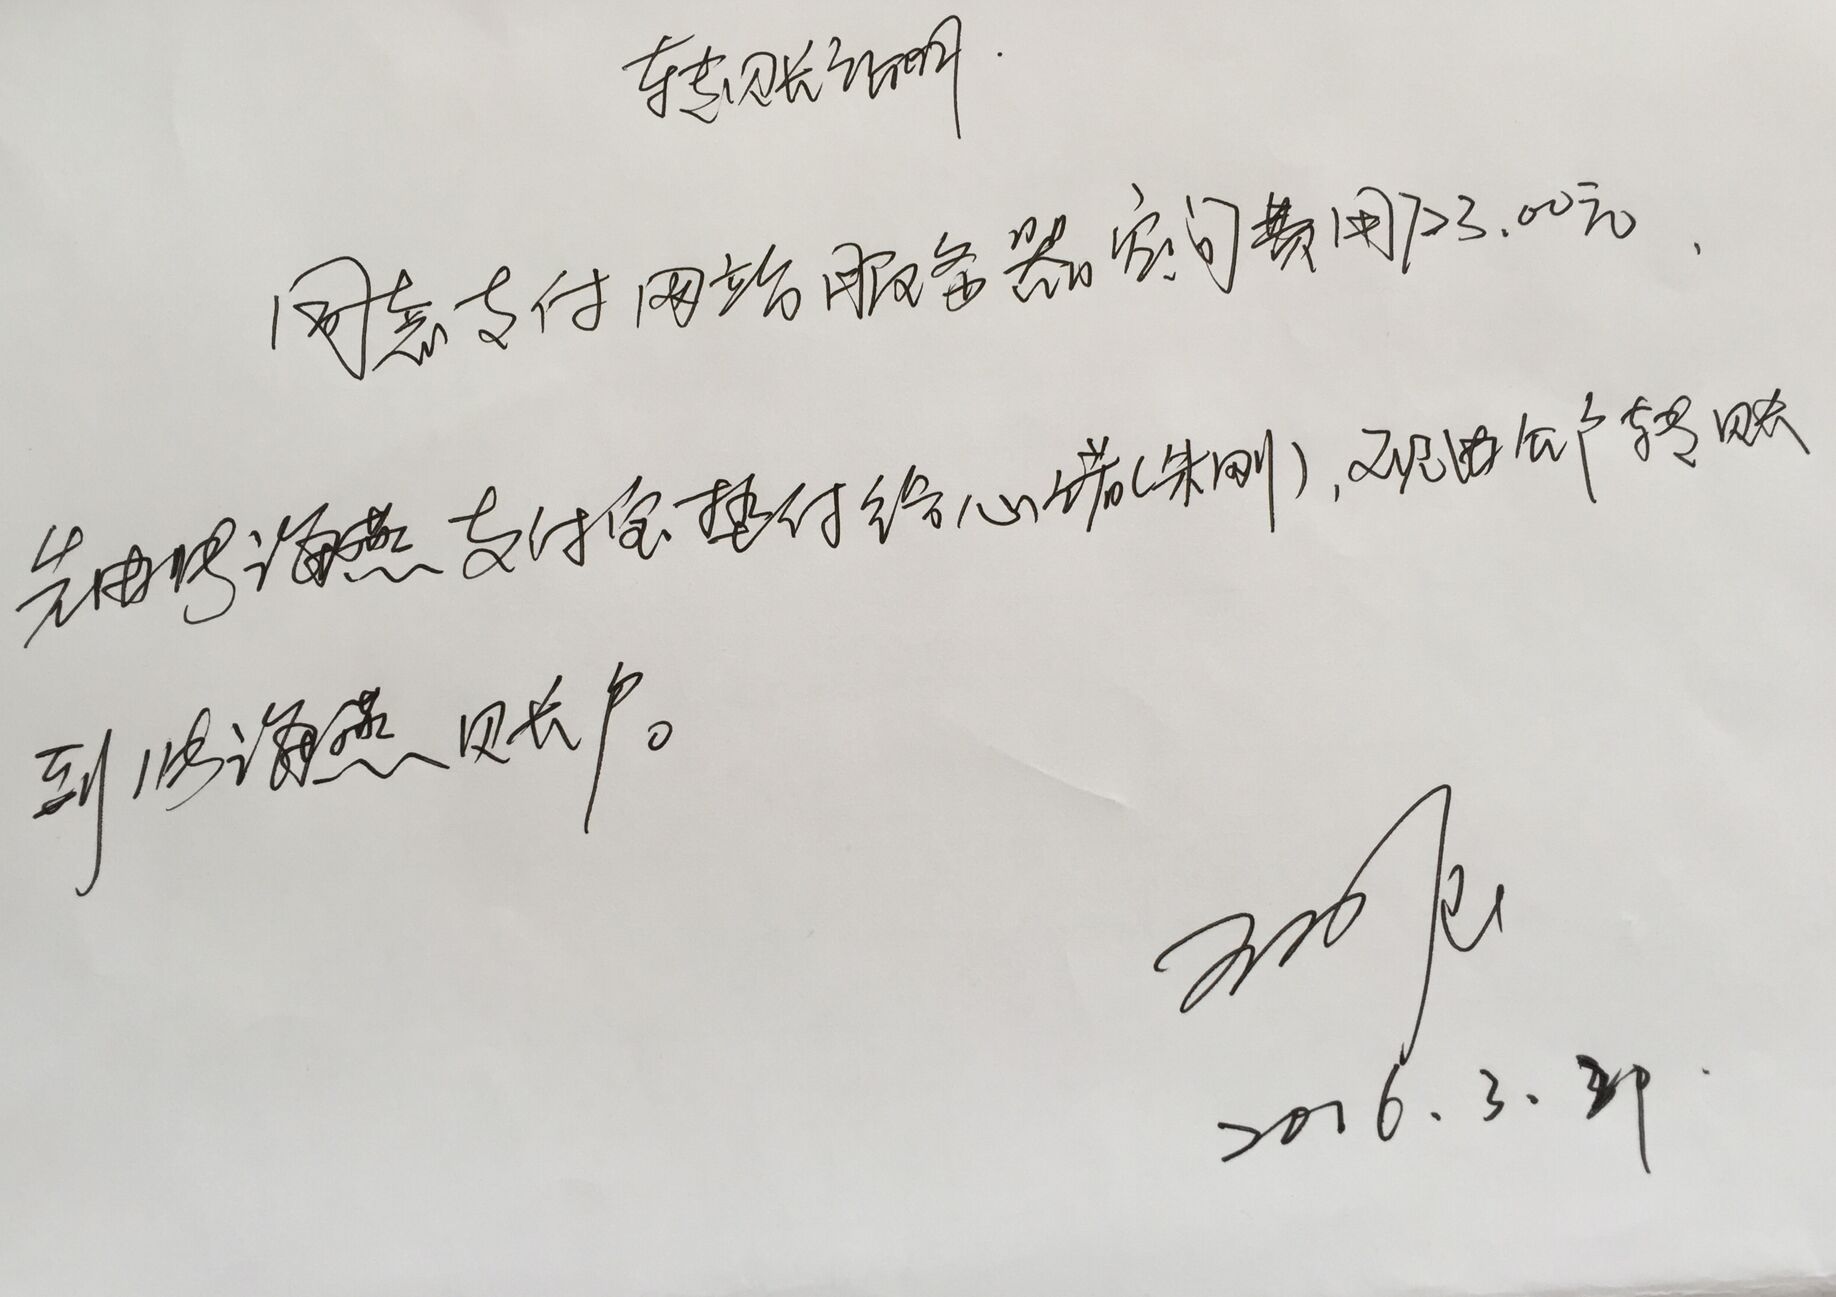 转账证明.
同意支付网站服务器空间费用723.00元,
先由 海燕支付宝垫付给心诺(朱刚),现由公户转账
到 海燕账户。
2016.3.